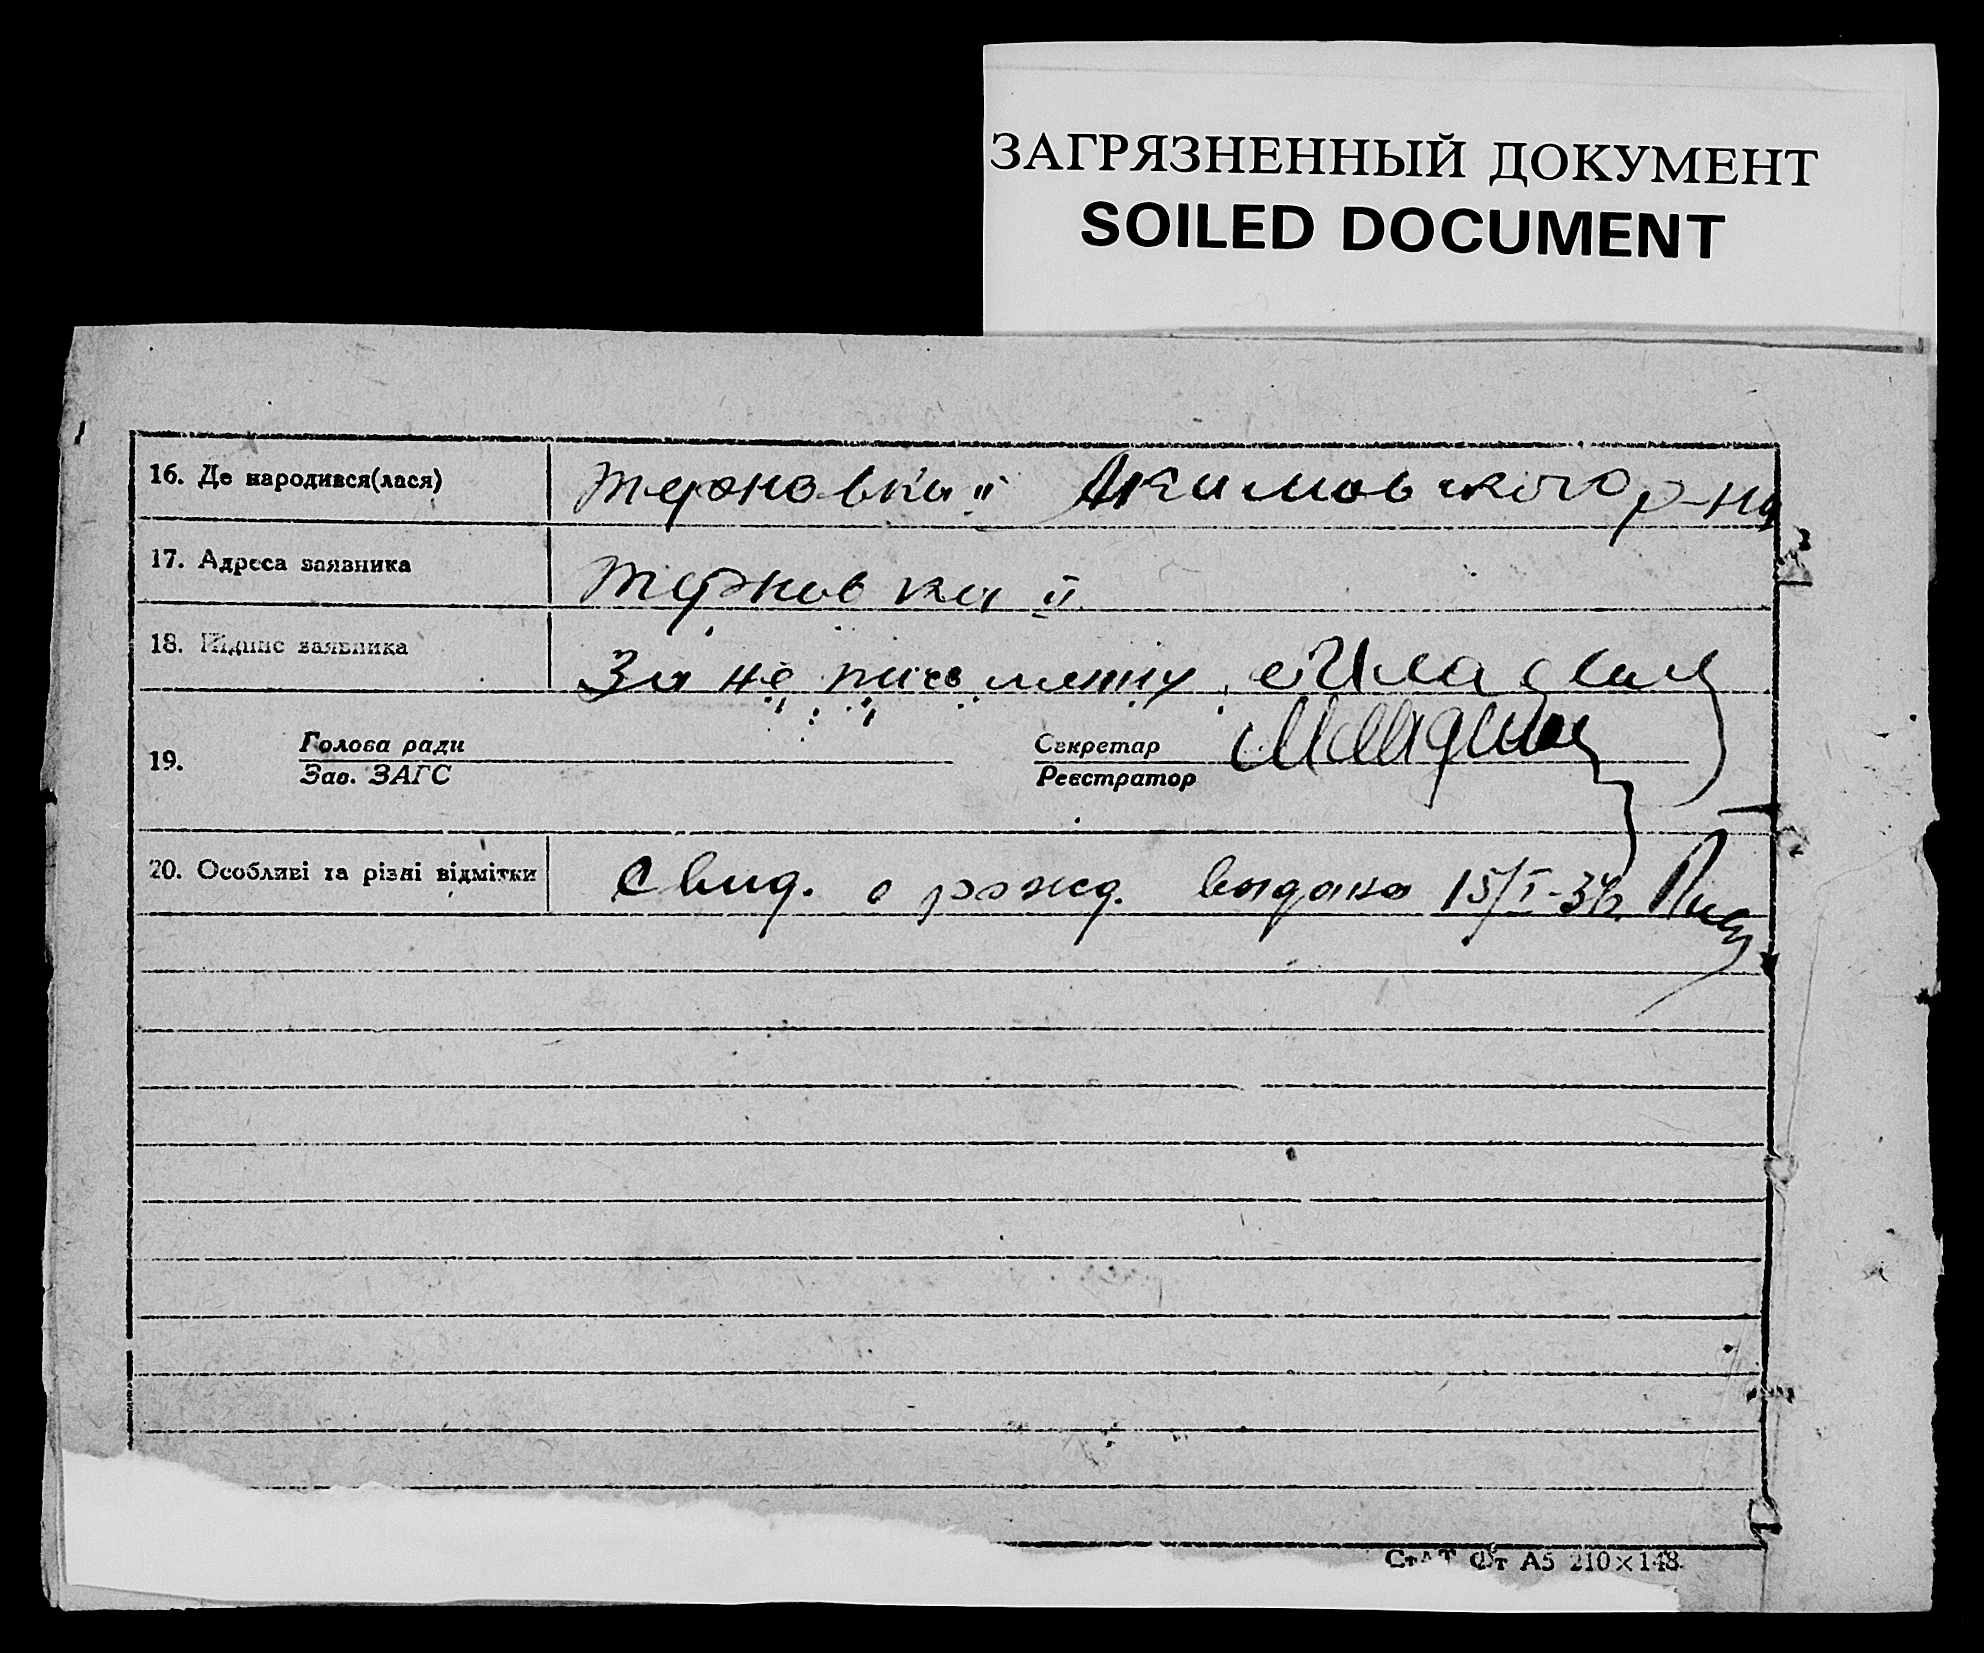 ЗАГРЯЗНЕННЫЙ ДОКУМЕНТ
SOILED DOCUMENT
16. Де народився(лася) Терновка ІІ Акимовского р-на
17. Адреса заявника Терновка ІІ
18. Підпис заявника За не письменну
19. Голова ради Секретар
Зав. ЗАГС Реєстратор
20. Особливі та різні відмітки Свид. о рожд. выдано 15/I-34
А5 210×148